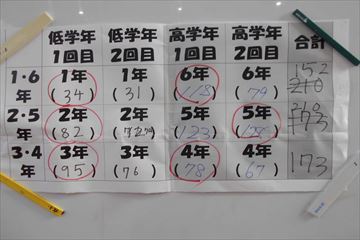 低学年 1回目 低学年 2回目 高学年 1回目 高学年 2回目 合計
1・6年 1年 (34) 1年 (31) 6年 6年 (79) 152
2・5年 2年 (82) 2年 5年 5年
3・4年 3年 (95) 3年 (76) 4年 (78) 4年 (67) 173